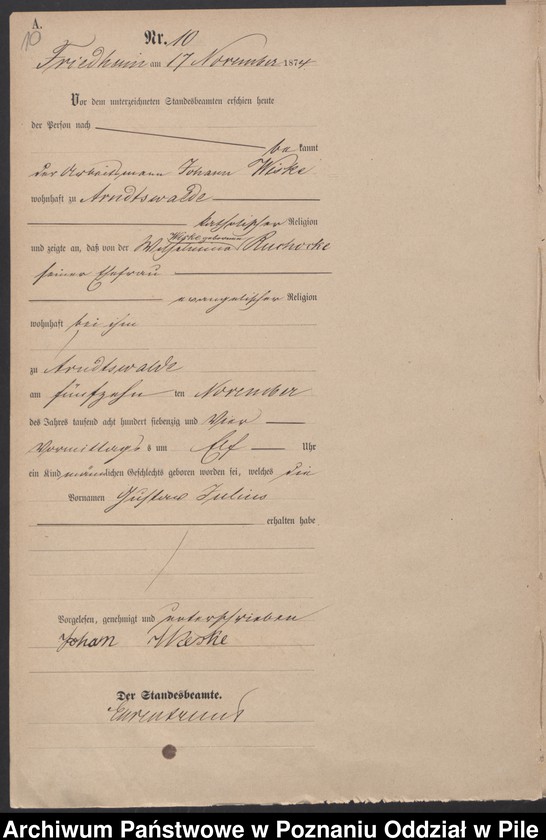 A.
10
Nr. 10
Friedheim am 17 November 1874
Vor dem unterzeichneten Standesbeamten erschien heute
der Person nach
be kannt
der Arbeitsmann Johann Weske
wohnhaft zu Arndtswalde
katholischer Religion
Weske geborenen
und zeigte an, daß von der Wilhelmine Ruchocke
seiner Ehefrau
evangelischer Religion
wohnhaft bei ihm
zu Arndtswalde
am fünfzehn ten November
des Jahres tausend acht hundert siebenzig und Vier
Vormittags s um Elf Uhr
ein Kind männlichen Geschlechts geboren worden sei, welches die
Vornamen Gustav Julius
erhalten habe
Vorgelesen, genehmigt und unterschrieben
Johan Weske
Der Standesbeamte.
Archiwum Państwowe w Poznaniu Oddział w Pile